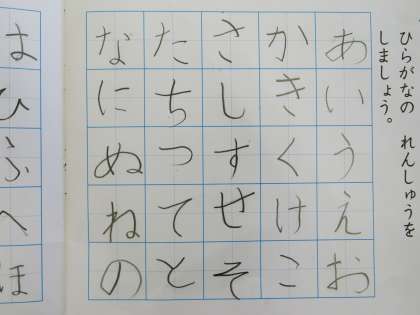 ひらがなの れんしゅうを
しましょう。
あいうえお
かきくけこ
さしすせそ
たちつてと
なにぬねの
はひふへほ